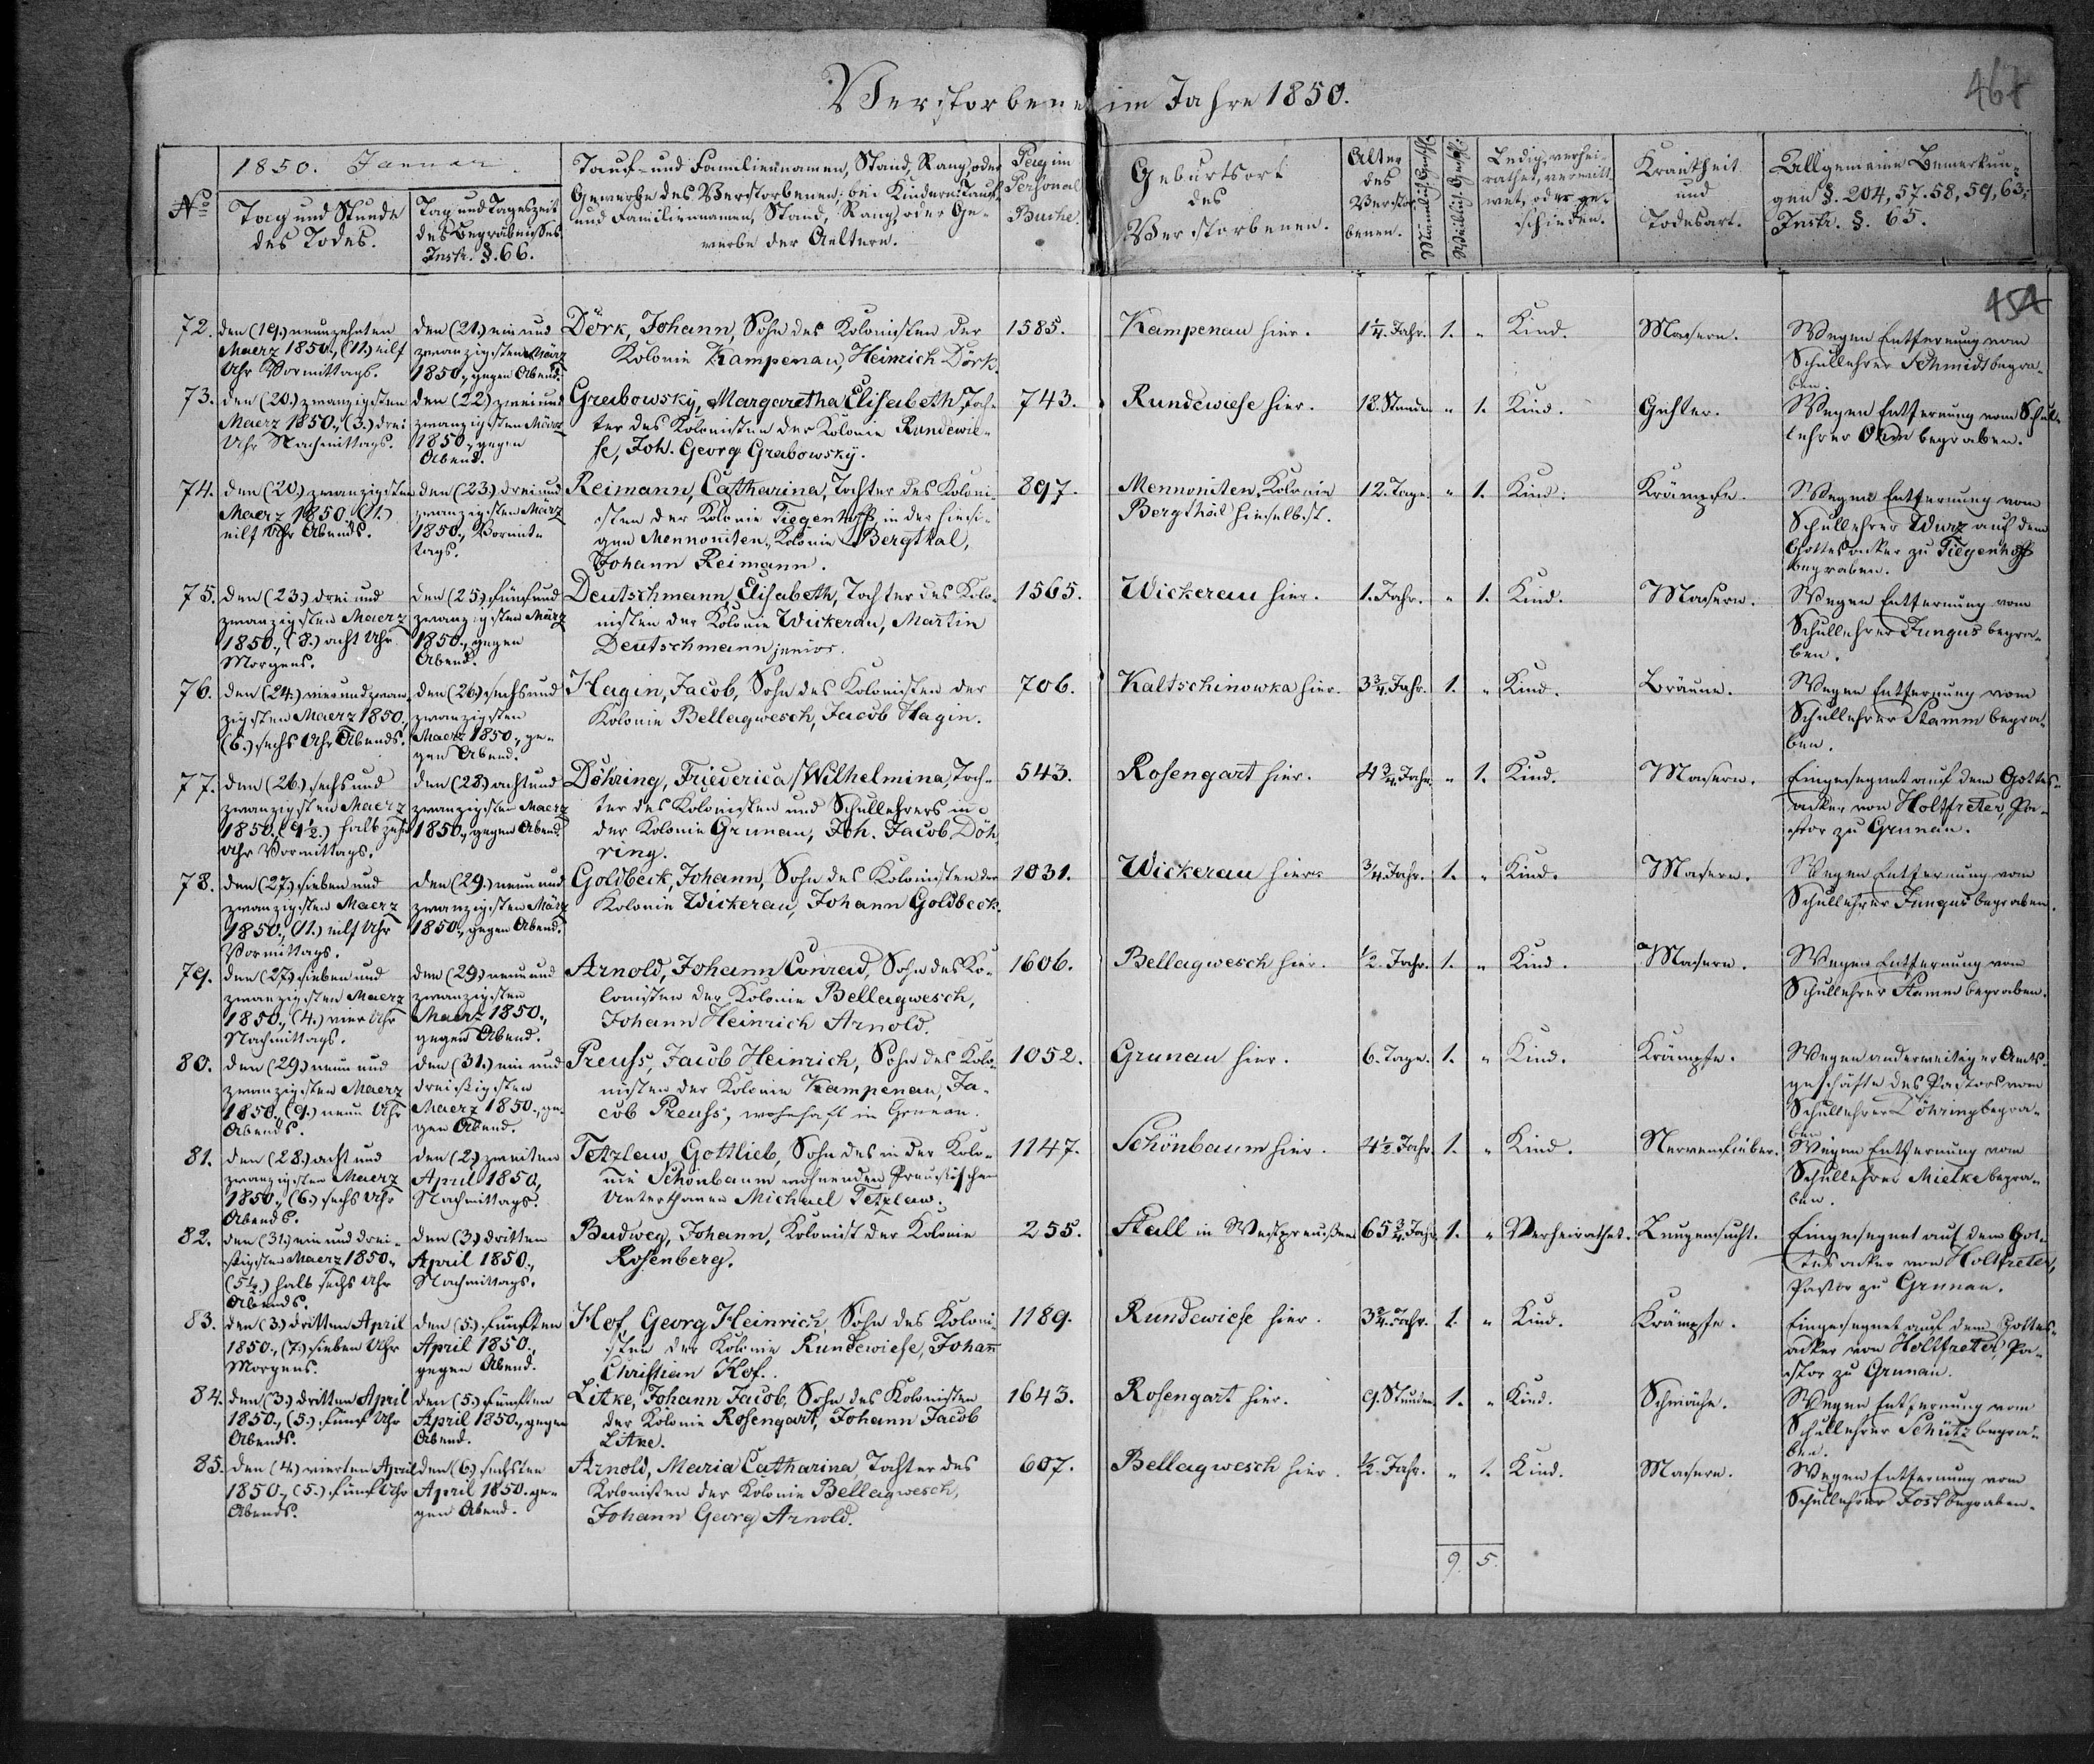 Verstorbene im Jahre 1850.
461
No
1850. Januar.
Tag und Stunde
des Todes.
Tag und Tageszeit
des Begräbnisses.
Instr. §. 66.
Tauf- und Familiennamen, Stand, Rang, oder
Gewerbe des Verstorbenen; bei Kindern: Tauf-
und Familiennamen, Stand, Rang, oder Ge-
werbe der Aeltern.
Personal
Buche
Geburtsort
des
Verstorbenen.
Alter
des
Verstor-
benen.
Männlich. Geschl.
Weiblich. Geschl.
Ledig, verhei-
rathet, verwitt-
wet, oder ge-
schieden.
Krankheit
und
Todesart.
Allgemeine Bemerkun-
gen §. 204, 57. 58, 59, 63,
Instr. §. 65.
454
72.
den (19.) neunzehnten
Maerz 1850., (11.) eilf
Uhr Vormittags.
den (21.) ein und
zwanzigsten März
1850., gegen Abend.
Dörk, Johann, Sohn des Kolonisten der
Kolonie Kampenau, Heinrich Dörk.
1585.
Kampenau hier.
1¼. Jahr.
1.
"
Kind.
Masern.
Wegen Entfernung vom
Schullehrer Schmidt begra-
ben.
73.
den (20.) zwanzigsten
Maerz 1850., (3.) drei
Uhr Nachmittags.
den (22) zwei und
zwanzigsten März
1850., gegen
Abend.
Grabowsky, Margaretha Elisabeth, Toch-
ter des Kolonisten der Kolonie Rundewie-
se, Joh. Georg Grabowsky.
743.
Rundewiese hier.
18. Stunden
"
1.
Kind.
Gichter.
Wegen Entfernung vom Schul-
lehrer Ohm begraben.
74.
den (20.) zwanzigsten
Maerz 1850 (11.)
eilf Uhr Abends.
den (23.) drei und
zwanzigsten März
1850., Vormit-
tags.
Reimann, Catharina, Tochter des Koloni-
sten der Kolonie Tiegenhoff, in der hiesi-
gen Mennoniten-Kolonie Bergthal,
Johann Reimann.
897.
Mennoniten-Kolonie
Bergthal hieselbst.
12. Tage.
"
1.
Kind.
Krämpfe.
Wegen Entfernung vom
Schullehrer Wurz auf dem
Gottesacker zu Tiegenhoff
begraben.
75.
den (23.) drei und
zwanzigsten Maerz
1850., (8.) acht Uhr
Morgens.
den (25.) fünf und
zwanzigsten März
1850., gegen
Abend.
Deutschmann, Elisabeth, Tochter des Kolo-
nisten der Kolonie Wickerau, Martin
Deutschmann junior.
1565.
Wickerau hier.
1. Jahr.
"
1.
Kind.
Masern.
Wegen Entfernung vom
Schullehrer Jungus begra-
ben.
76.
den (24.) vier und zwan-
zigsten Maerz 1850.,
(6.) sechs Uhr Abends.
den (26.) sechs und
zwanzigsten
Maerz 1850., ge-
gen Abend.
Hagin, Jacob, Sohn des Kolonisten der
Kolonie Bellagwesch, Jacob Hagin.
706.
Kaltschinowka hier.
3¾. Jahr.
1.
"
Kind.
Bräune.
Wegen Entfernung vom
Schullehrer Stamm begra-
ben.
77.
den (26.) sechs und
zwanzigsten Maerz
1850., (9½.) halb zehn
Uhr Vormittags.
den (28.) acht und
zwanzigsten Maerz
1850., gegen Abend
Döhring, Friederica Wilhelmina, Toch-
ter des Kolonisten und Schullehrers in
der Kolonie Grunau, Joh. Jacob Döh-
ring.
543.
Rosengart hier.
4¾. Jahr.
"
1.
Kind.
Masern.
Eingesegnet auf dem Gottes-
acker von Holtfreter, Pa-
stor zu Grunau.
78.
den (27.) sieben und
zwanzigsten Maerz
1850., (11.) eilf Uhr
Vormittags.
den (29.) neun und
zwanzigsten März
1850., gegen Abend.
Goldbeck, Johann, Sohn des Kolonisten der
Kolonie Wickerau, Johann Goldbeck.
1031.
Wickerau hier.
¾. Jahr.
1.
"
Kind.
Masern.
Wegen Entfernung vom
Schullehrer Jungus begraben.
79.
den (27.) sieben und
zwanzigsten Maerz
1850., (4.) vier Uhr
Nachmittags.
den (29.) neun und
zwanzigsten
Maerz 1850.,
gegen Abend.
Arnold, Johann Conrad, Sohn des Ko-
lonisten der Kolonie Bellagwesch,
Johann Heinrich Arnold.
1606.
Bellagwesch hier.
½. Jahr.
1.
"
Kind.
Masern.
Wegen Entfernung vom
Schullehrer Stamm begraben.
80.
den (29.) neun und
zwanzigsten Maerz
1850., (9.) neun Uhr
Abends.
den (31.) ein und
dreißigsten
Maerz 1850., ge-
gen Abend.
Preuss, Jacob Heinrich, Sohn des Kolo-
nisten der Kolonie Kampenau, Ja-
cob Preuss, wohnhaft in Grunau.
1052.
Grunau hier.
6. Tage.
1.
"
Kind.
Krämpfe.
Wegen anderweitiger Amts-
geschäfte des Pastors vom
Schullehrer Döhring begra-
ben
81.
den (28.) acht und
zwanzigsten Maerz
1850., (6.) sechs Uhr
Abends.
den (2.) zweiten
April 1850,
Nachmittags.
Tetzlaw, Gottlieb, Sohn des in der Kolo-
nie Schönbaum wohnenden Preußischen
Unterthanen Michael Tetzlaw.
1147.
Schönbaum hier.
4½. Jahr.
1.
"
Kind.
Nervenfieber.
Wegen Entfernung vom
Schullehrer Mielke begra-
ben.
82.
den (31.) ein und drei-
ßigsten Maerz 1850.,
(5½.) halb sechs Uhr
Abends.
den (3.) dritten
April 1850.,
Nachmittags.
Budweg, Johann, Kolonist der Kolonie
Rosenberg.
255.
Stall in Westpreußen
65¾. Jahr.
1.
"
Verheirathet.
Lungensucht.
Eingesegnet auf dem Got-
tesacker von Holtfreter,
Pastor zu Grunau.
83.
den (3.) dritten April
1850., (7.) sieben Uhr
Morgens.
den (5.) fünften
April 1850.,
gegen Abend.
Hof, Georg Heinrich, Sohn des Koloni-
sten der Kolonie Rundewiese, Johann
Christian Hof.
1189.
Rundewiese hier.
3¾. Jahr.
1.
"
Kind.
Krämpfe.
Eingesegnet auf dem Gottes-
acker von Holtfreter, Pa-
stor zu Grunau.
84.
den (3.) dritten April
1850., (5.) fünf Uhr
Abends.
den (5.) fünften
April 1850., gegen
Abend.
Litke, Johann Jacob, Sohn des Kolonisten
der Kolonie Rosengart, Johann Jacob
Litke.
1643.
Rosengart hier.
9. Stunden
1.
"
Kind.
Schwäche.
Wegen Entfernung vom
Schullehrer Schütz begra-
ben.
85.
den (4.) vierten April
1850., (5.) fünf Uhr
Abends.
den (6.) sechsten
April 1850. ge-
gen Abend.
Arnold, Maria Catharina, Tochter des
Kolonisten der Kolonie Bellagwesch,
Johann Georg Arnold.
607.
Bellagwesch hier.
½. Jahr.
"
1.
Kind.
Masern.
Wegen Entfernung vom
Schullehrer Jost begraben.
9.
5.